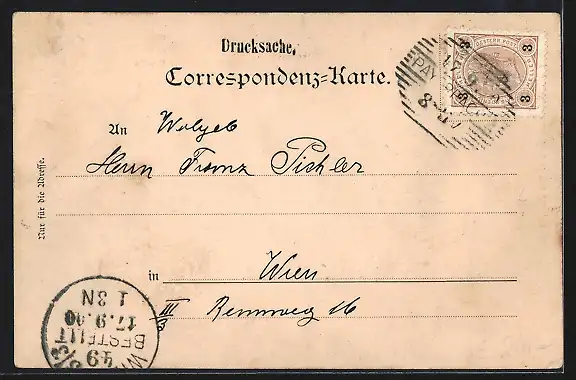 Drucksache.
Correspondenz-Karte.
3
3
3
OESTERR. POST
PAY
8
An Wolgeb
Herrn Franz Pichler
Nur für die Adresse.
in Wien
III/3 Rennweg 16
1 3N
17.9.00
BESTELLT
49